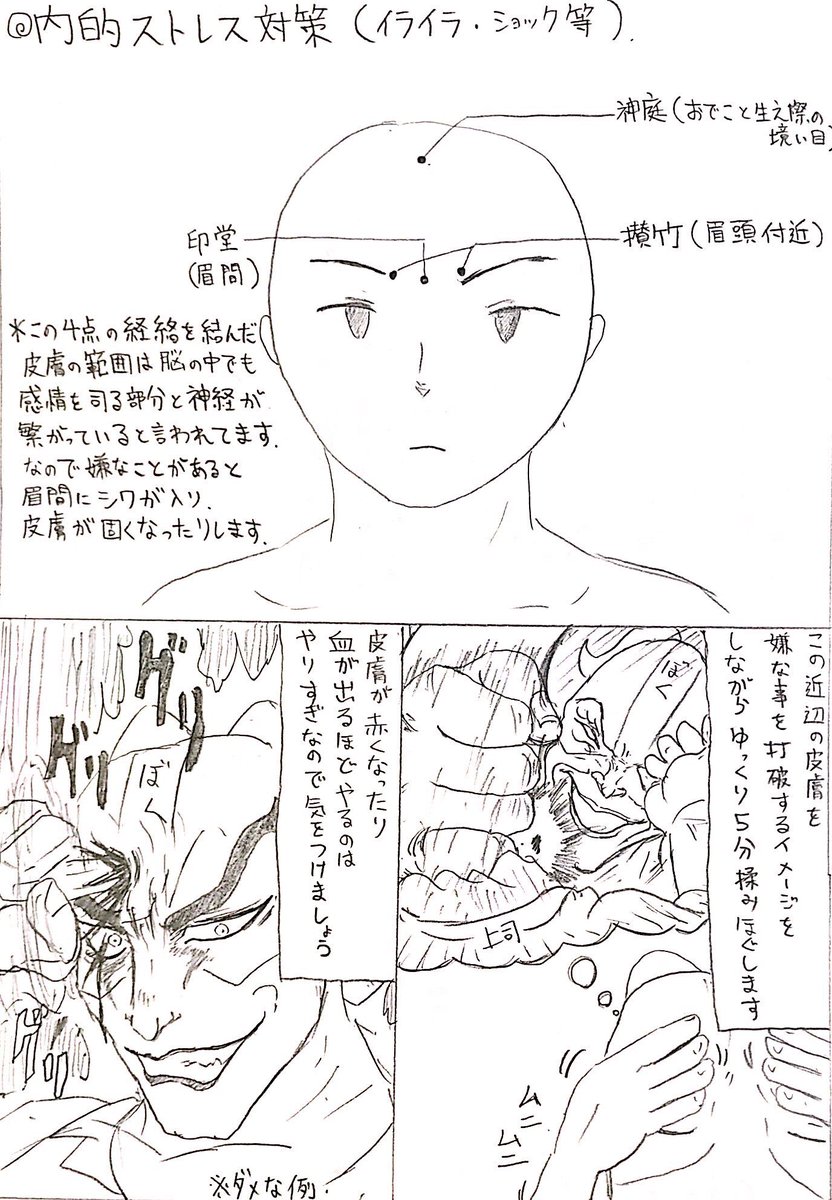 ◎内的ストレス対策(イライラ・ショック等).
神庭(おでこと生え際の
境い目)
印堂
(眉間)
攅竹(眉頭付近)
*この4点の経絡を結んだ
皮膚の範囲は脳の中でも
感情を司る部分と神経が
繋がっていると言われてます.
なので嫌なことがあると
眉間にシワが入り.
皮膚が固くなったりします.
この近辺の皮膚を
嫌な事を打破するイメージを
しながらゆっくり5分揉みほぐします
ぼく
上司
ムニ
ムニ
皮膚が赤くなったり
血が出るほどやるのは
やりすぎなので気をつけましょう
グリ
グリ
ぼく
グリ
※ダメな例.